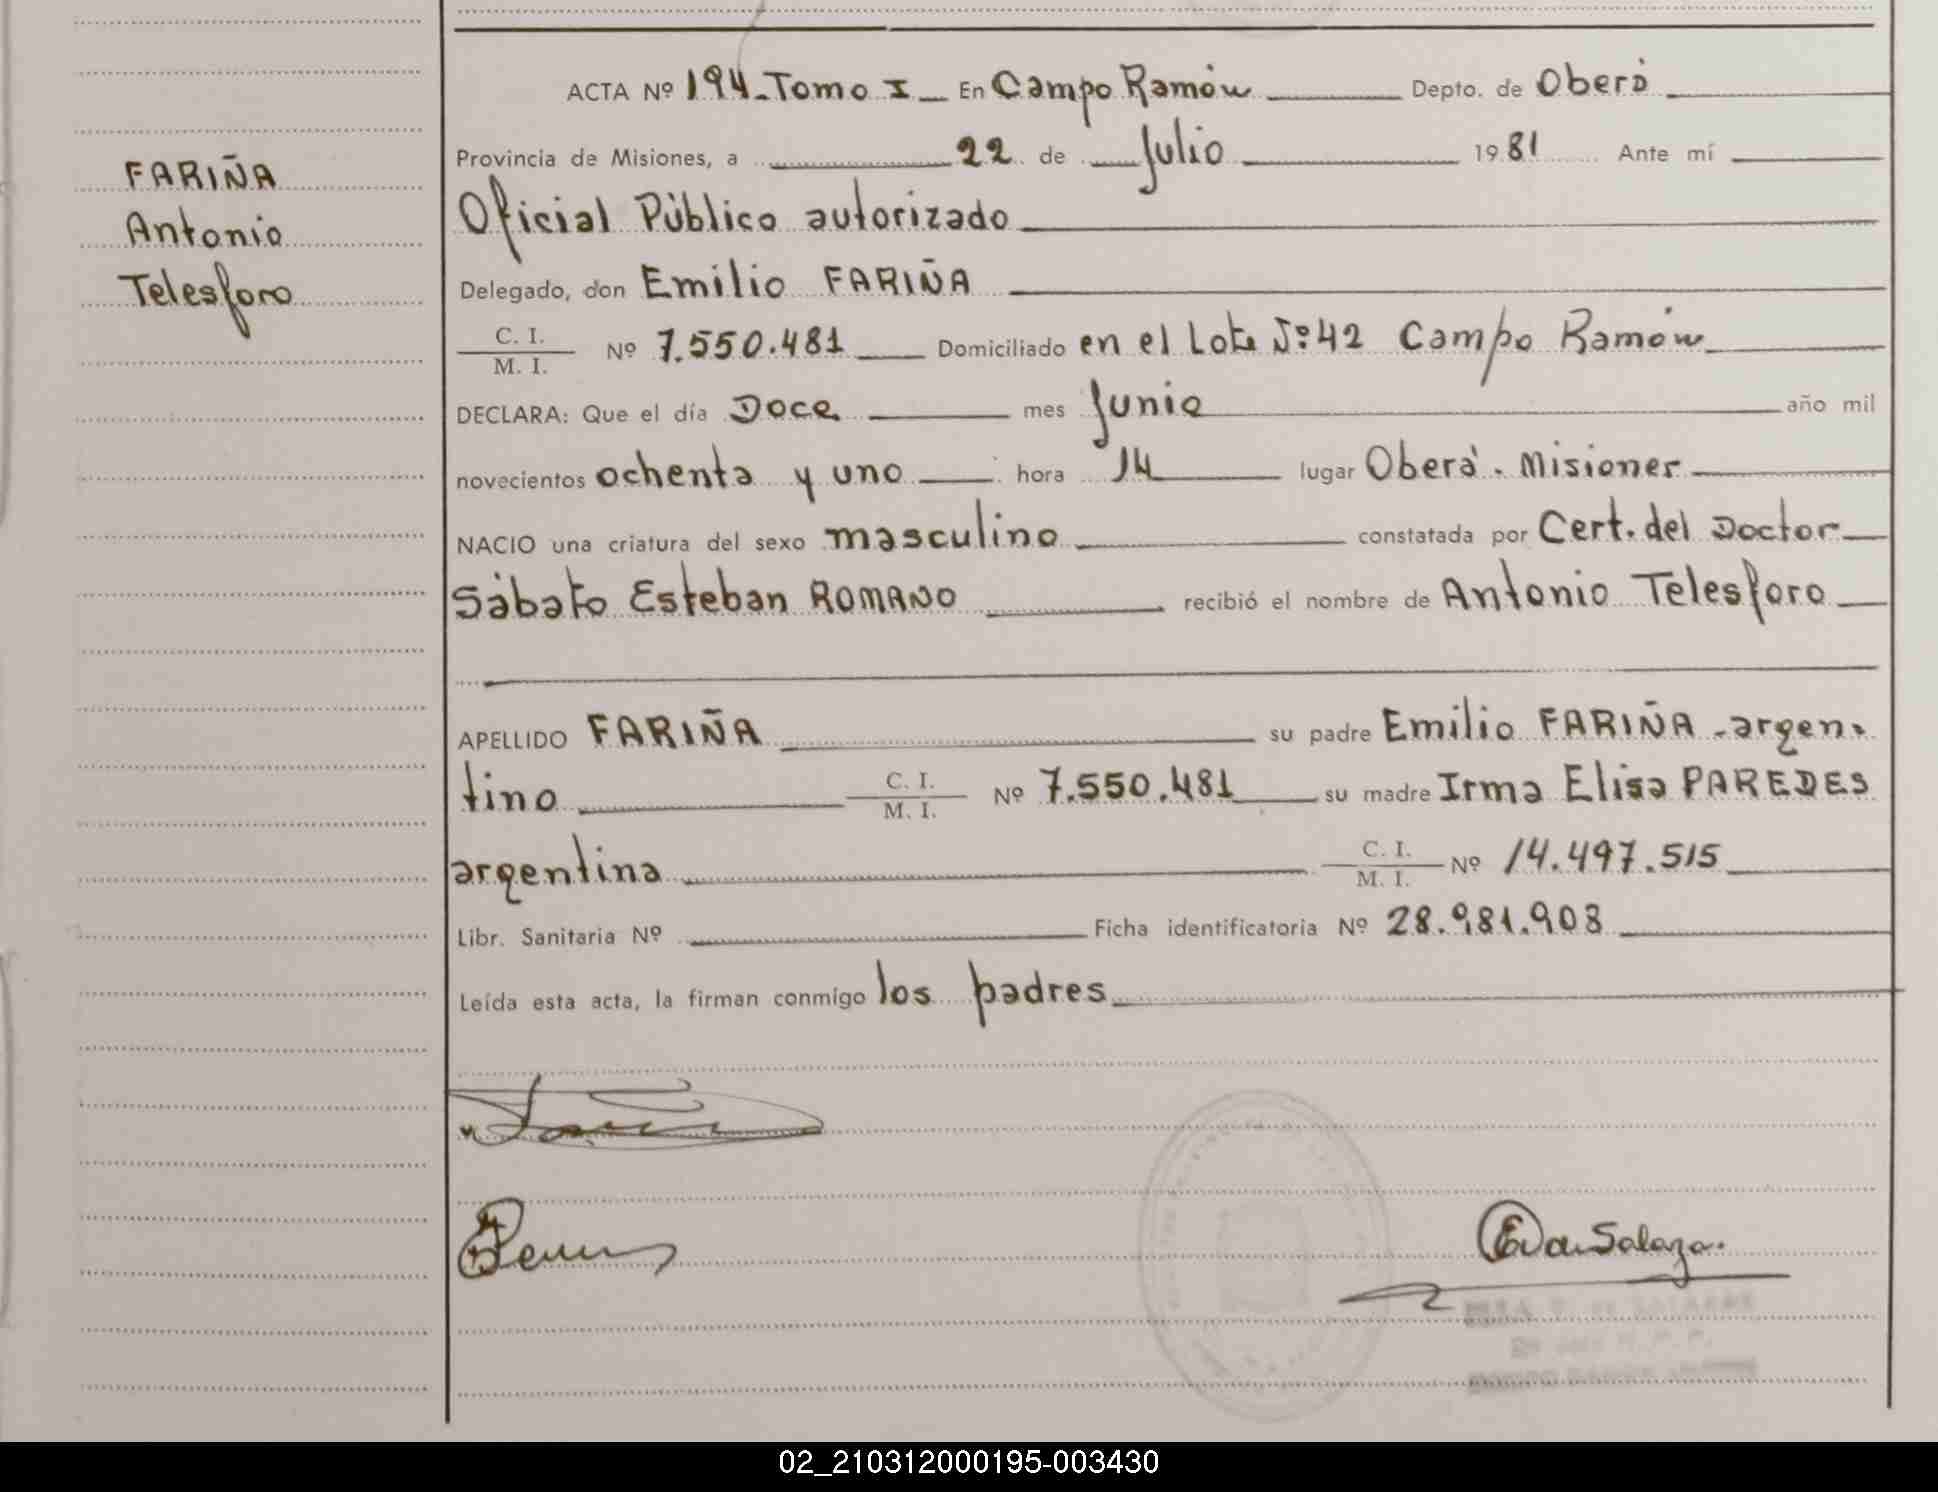 ACTA Nº 194-Tomo I En Campo Ramón Depto. de Oberá
Provincia de Misiones, a 22 de Julio 1981 Ante mí
Oficial Público autorizado
Delegado, don Emilio FARIÑA
C. I.
M. I. Nº 7.550.481 Domiciliado en el Lote Nº 42 Campo Ramón
DECLARA: Que el día Doce mes Junio año mil
novecientos ochenta y uno hora 14 lugar Oberá. Misiones
NACIO una criatura del sexo masculino constatada por Cert. del Doctor
Sábato Esteban ROMANO recibió el nombre de Antonio Telesforo
APELLIDO FARIÑA su padre Emilio FARIÑA - argen-
tino C. I. M. I. Nº 7.550.481 su madre Irma Elisa PAREDES
argentina C. I. M. I. Nº 14.497.515
Libr. Sanitaria Nº Ficha identificatoria Nº 28.981.908
Leída esta acta, la firman conmigo los padres
FARIÑA
Antonio
Telesforo
02_210312000195-003430